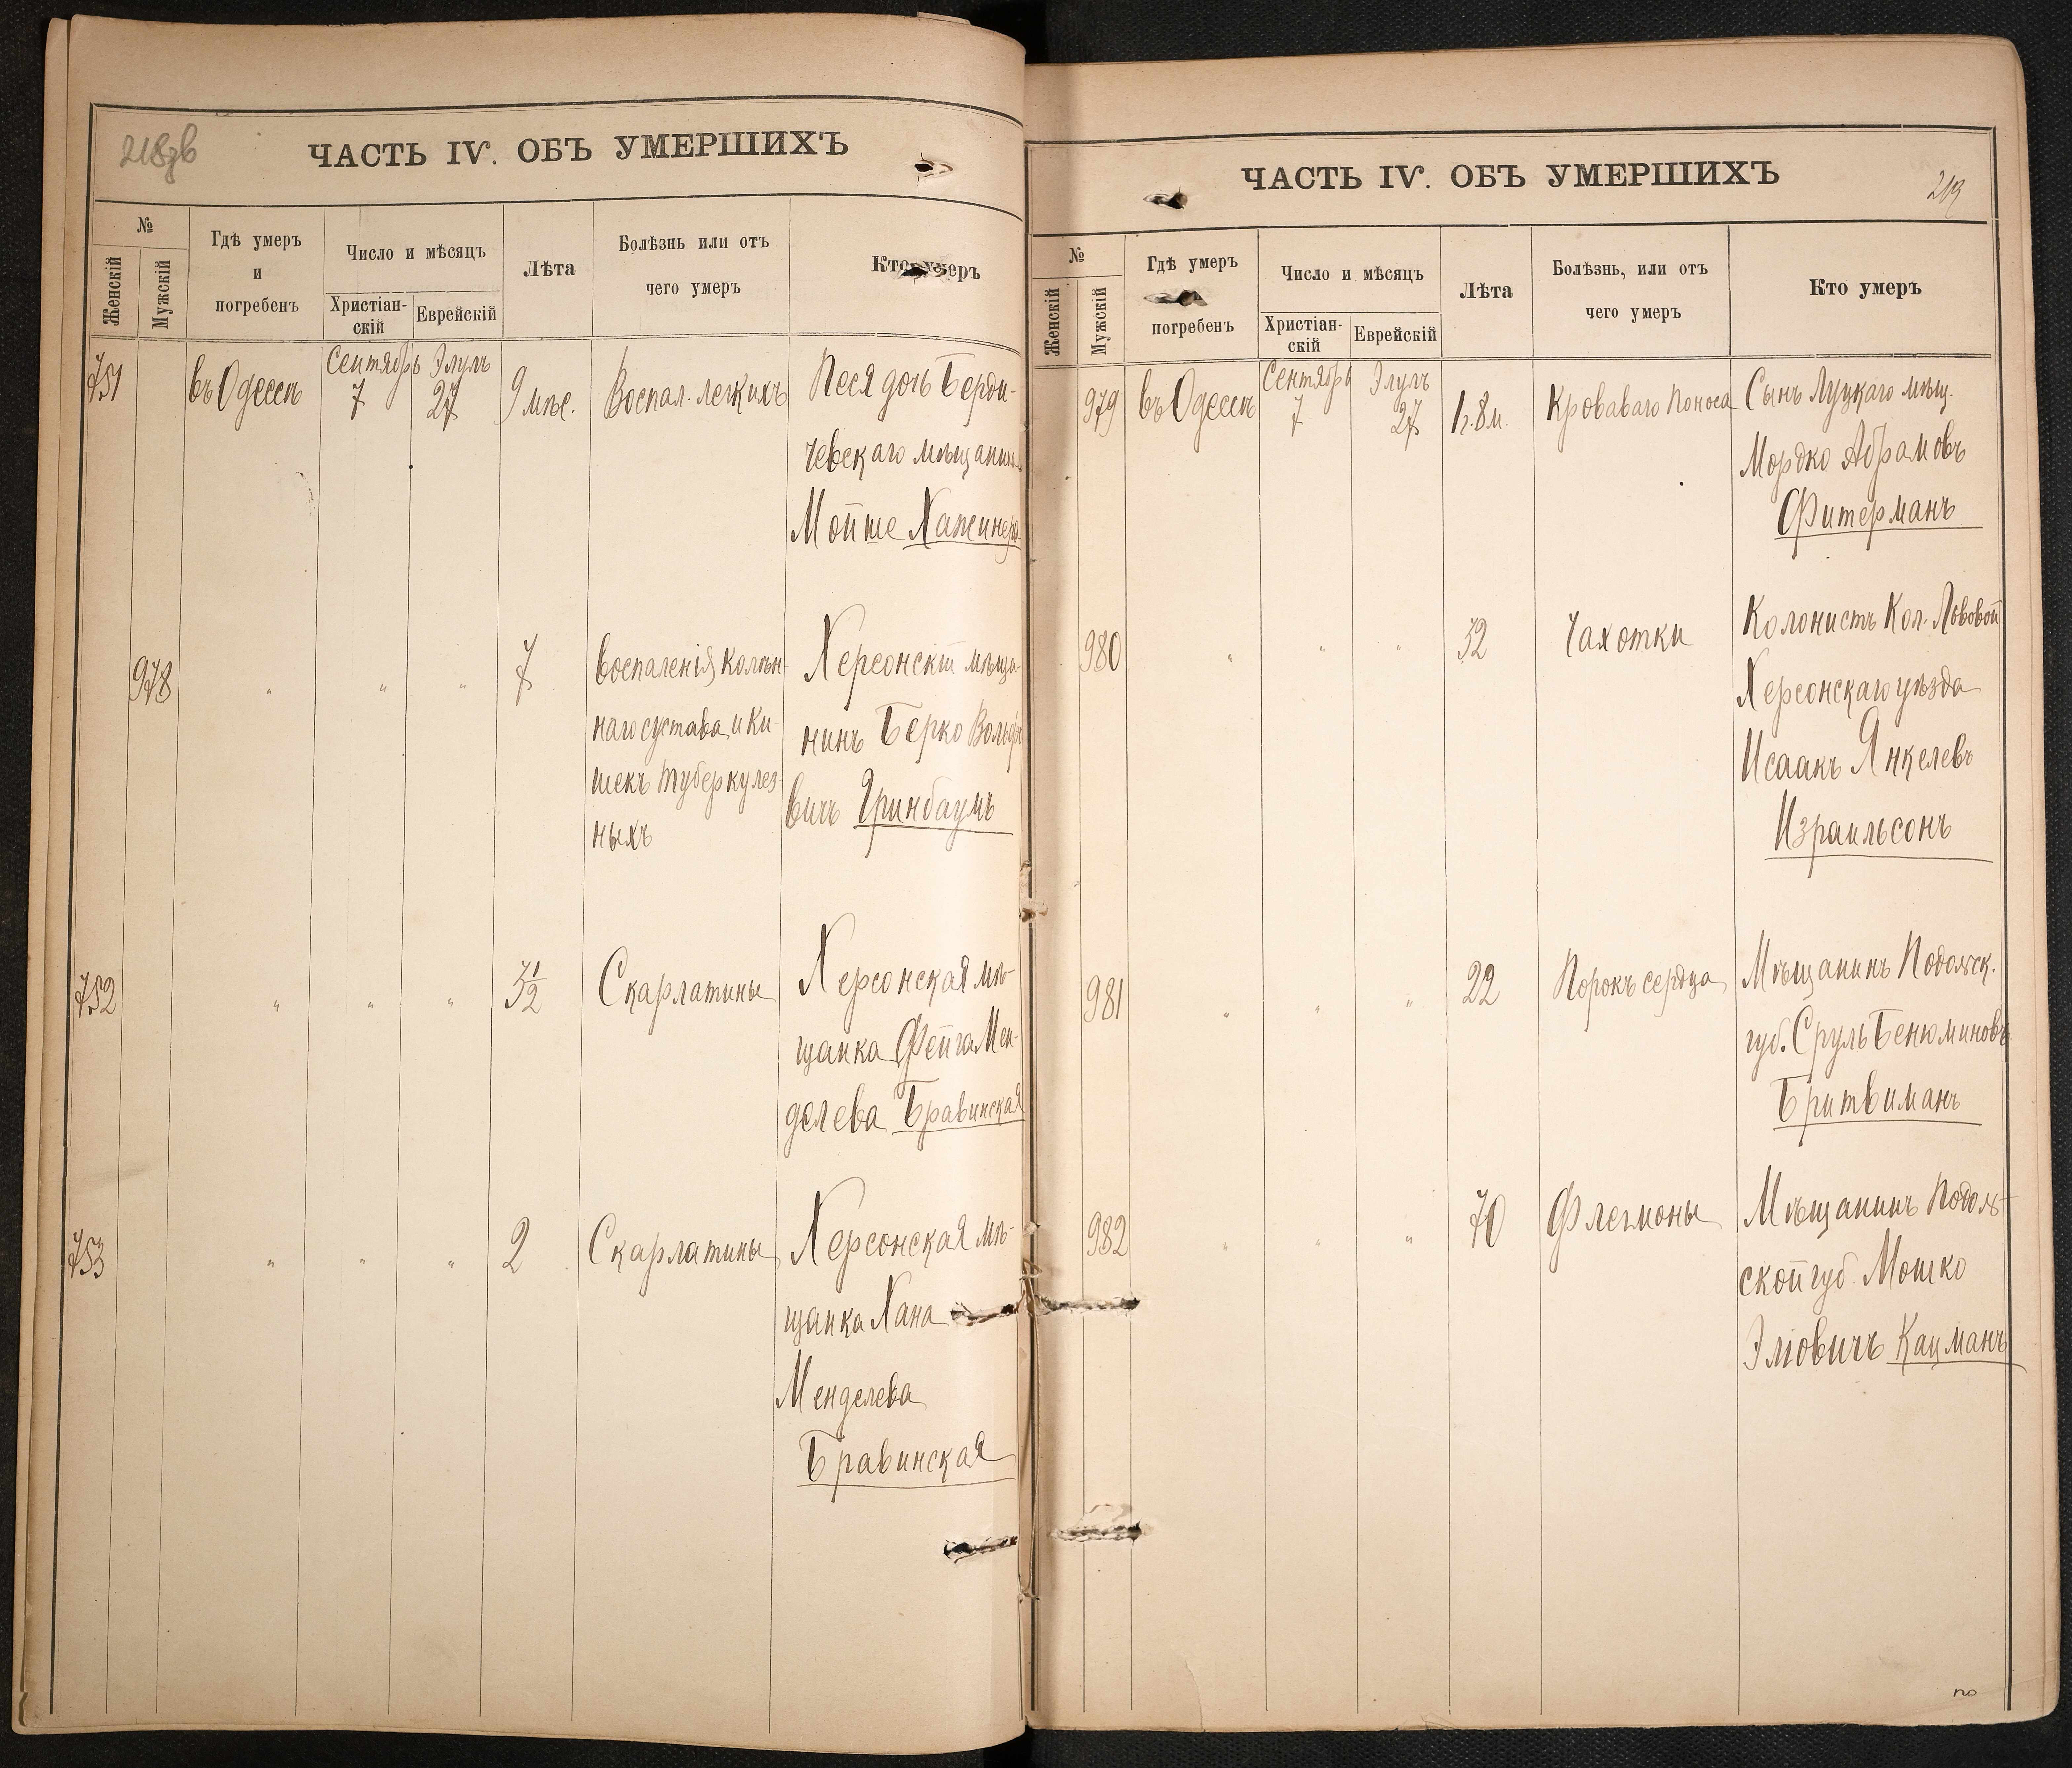 218зв
ЧАСТЬ IV. ОБЪ УМЕРШИХЪ
№
Женскій
Мужскій
Гдѣ умеръ
и
погребенъ
Число и мѣсяцъ
Христіан-
скій
Еврейскій
Лѣта
Болѣзнь или отъ
чего умеръ
Кто умеръ
751
въ Одессѣ
Сентябрь
7
Элулъ
27
9 мѣс.
Воспал. легкихъ
Песя дочь Берди-
чевскаго мѣщанина
Мойше
978
"
"
"
7
воспаленія колѣн-
наго сустава и ки-
шекъ туберкулез-
ныхъ
Херсонскій мѣща-
нинъ Берко Вольфо
вичъ Гринбаумъ
752
"
"
"
3½
Скарлатины
Херсонская мѣ-
щанка Фейга Мен-
делева Бравинская
753
"
"
"
2
Скарлатины
Херсонская мѣ-
щанка Хана
Менделева
Бравинская
ЧАСТЬ IV. ОБЪ УМЕРШИХЪ
219
№
Женскій
Мужскій
Гдѣ умеръ
погребенъ
Число и мѣсяцъ
Христіан-
скій
Еврейскій
Лѣта
Болѣзнь, или отъ
чего умеръ
Кто умеръ
979
въ Одессѣ
Сентябрь
7
Элулъ
27
1г. 8м.
Кроваваго поноса
Сынъ Луцкаго мѣщ.
Мордко Абрамовъ
Фитерманъ
980
"
"
"
52
Чахотки
Колонистъ Кол. Львовой
Херсонскаго уѣзда
Исаакъ Янкелевъ
Израильсонъ
981
"
"
"
22
Порокъ сердца
Мѣщанинъ Подольск.
губ. Сруль Бенюминовъ
Бритвиманъ
982
"
"
"
70
Флегмоны
Мѣщанинъ Подоль-
ской губ. Мошко
Эліовичъ Кацманъ